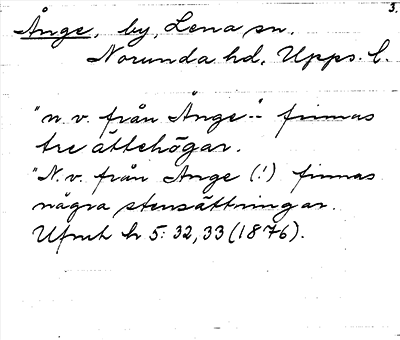 3.
Ånge, by, Lena sn.
Norunda hd, Upps. l.
"n.v. från Ånge" finnas
tre ättehögar.
"N.v. från Ange (!) finnas
några stensättningar.
Ufmt h 5: 32, 33 (1876).